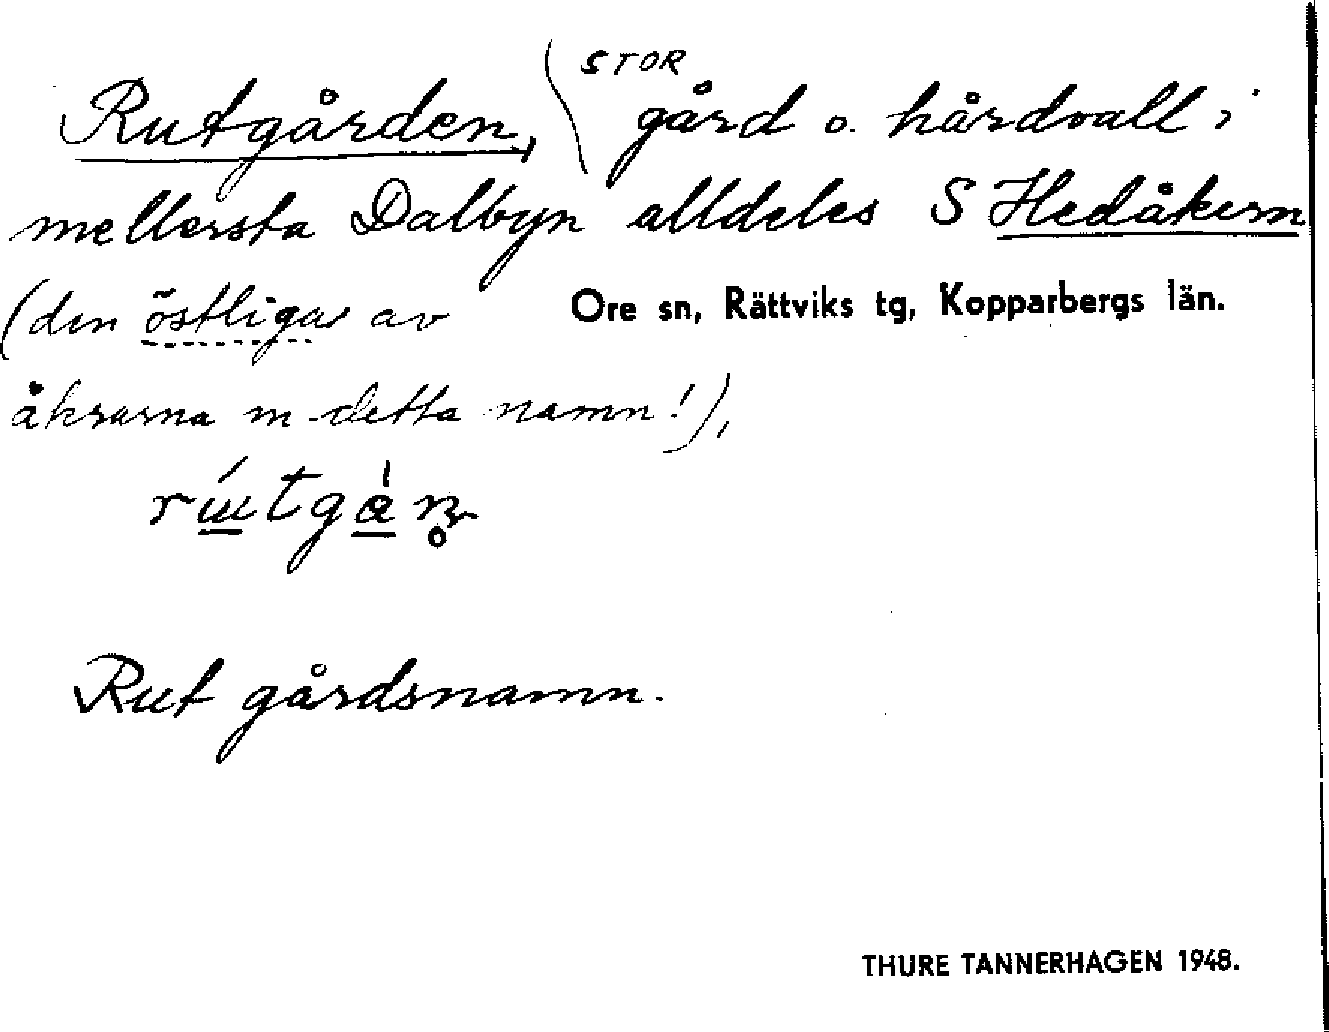 Rutgården, STOR gård o. hårdvall i
mellersta Dalbyn alldeles S Hedåkern
(den östliga av
Ore sn, Rättviks tg, Kopparbergs län.
åkrarna m detta namn!),
Rut gårdsnamn.
THURE TANNERHAGEN 1948.